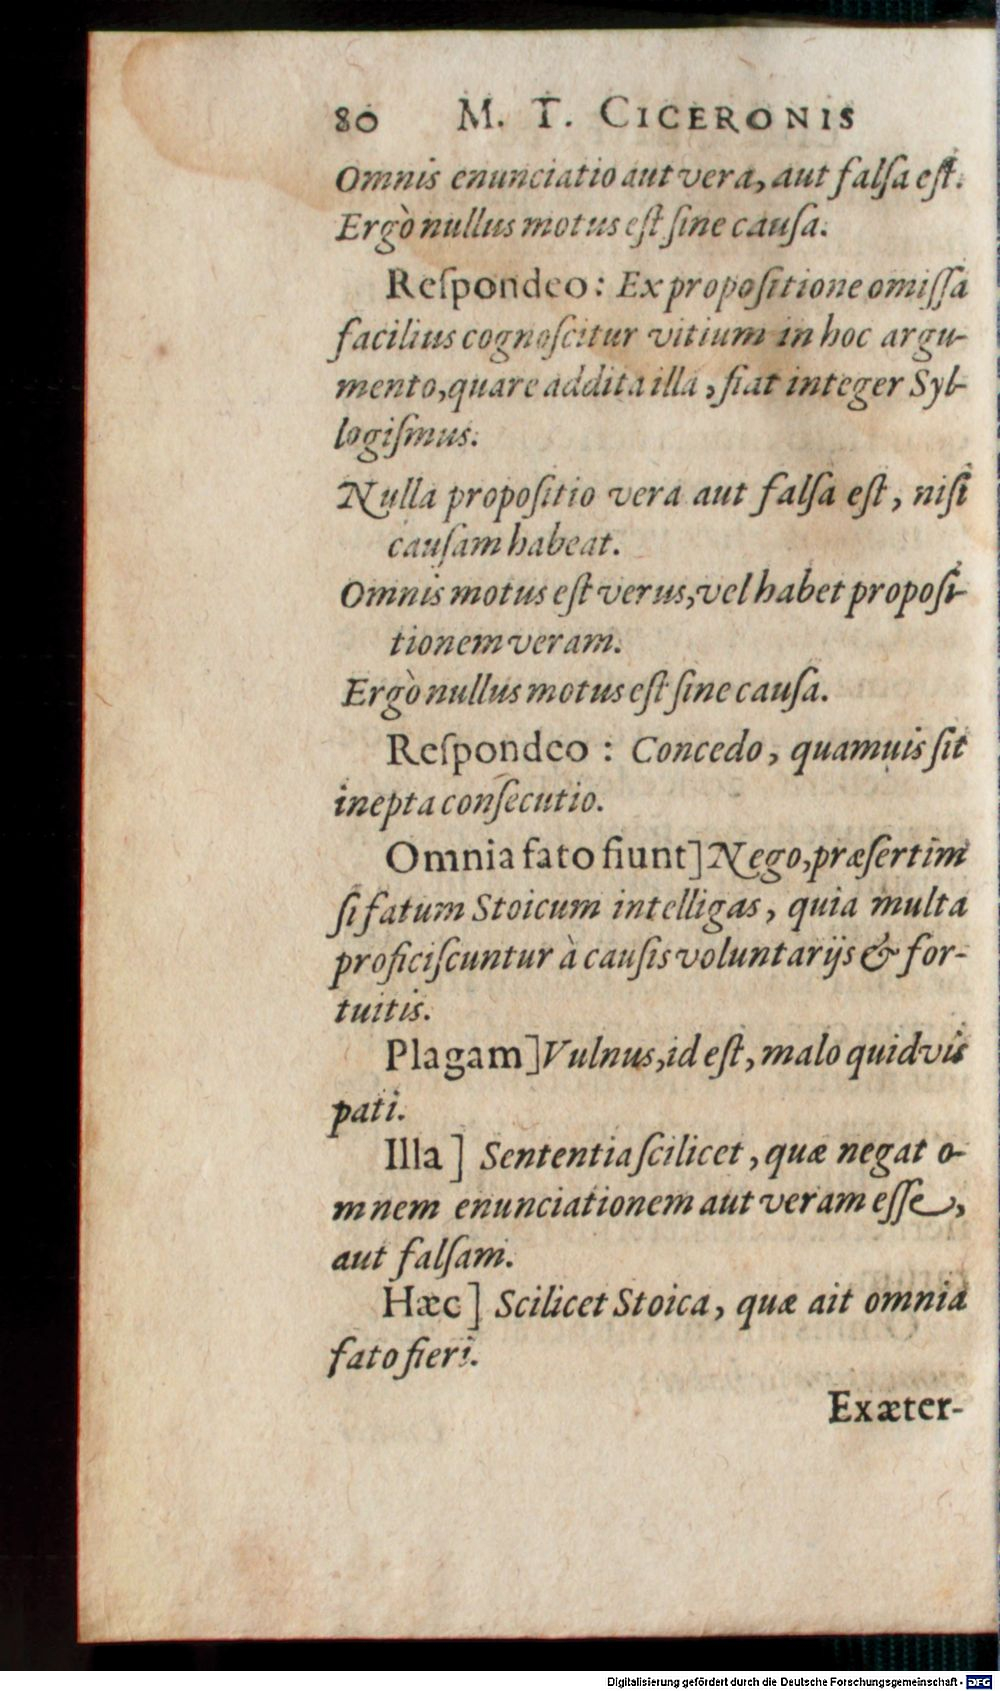 80 M. T. CICERONIS
Omnis enunciatio aut vera, aut falſa eſt.
Ergò nullus motus eſt ſine cauſa.
Reſpondeo: Ex propoſitione omiſſa
facilius cognoſcitur vitium in hoc argu-
mento, quare addita illa, fiat integer Syl-
logiſmus.
Nulla propoſitio vera aut falſa eſt, niſi
cauſam habeat.
Omnis motus eſt verus, vel habet propoſi-
tionem veram.
Ergò nullus motus eſt ſine cauſa.
Reſpondeo: Concedo, quamuis ſit
inepta conſecutio.
Omnia fato fiunt] Nego, præſertim
ſi fatum Stoicum intelligas, quia multa
proficiſcuntur à cauſis voluntarijs & for-
tuitis.
Plagam] Vulnus, id eſt, malo quidvis
pati.
Illa] Sententia ſcilicet, quæ negat o-
mnem enunciationem aut veram eſſe,
aut falſam.
Hæc] Scilicet Stoica, quæ ait omnia
fato fieri.
Exæter-
Digitalisierung gefördert durch die Deutsche Forschungsgemeinschaft - DFG